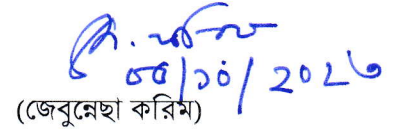 ০৫/১০/২০২৩
(জেবুন্নেছা করিম)